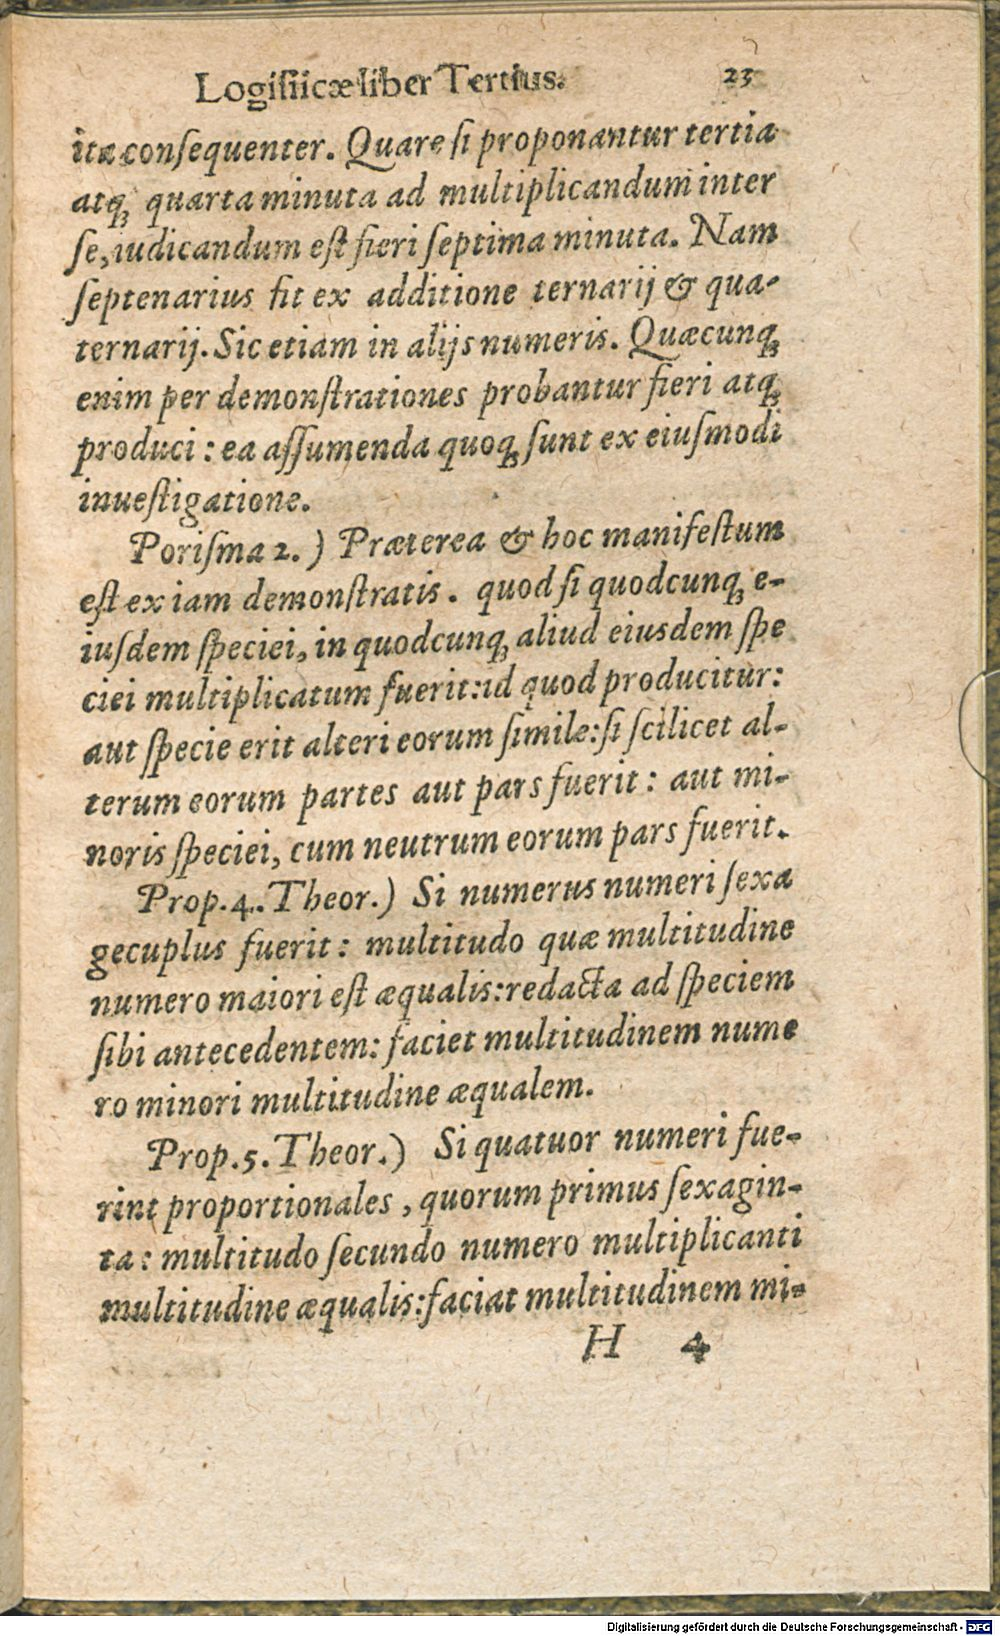 Logiſticæ liber Tertius. 23
ita conſequenter. Quare ſi proponantur tertia
atq́ꝫ quarta minuta ad multiplicandum inter
ſe, iudicandum eſt fieri ſeptima minuta. Nam
ſeptenarius fit ex additione ternarij & qua-
ternarij. Sic etiam in alijs numeris. Quæcunqꝫ
enim per demonſtrationes probantur fieri atqꝫ
produci : ea aſſumenda quoqꝫ ſunt ex eiuſmodi
inueſtigatione.
Poriſma 2. ) Præterea & hoc manifeſtum
eſt ex iam demonſtratis. quod ſi quodcunqꝫ e-
iuſdem ſpeciei, in quodcunqꝫ aliud eiusdem ſpe
ciei multiplicatum fuerit: id quod producitur:
aut ſpecie erit alteri eorum ſimile: ſi ſcilicet al-
terum eorum partes aut pars fuerit : aut mi-
noris ſpeciei, cum neutrum eorum pars fuerit.
Prop. 4. Theor.) Si numerus numeri ſexa
gecuplus fuerit : multitudo quæ multitudine
numero maiori eſt æqualis: redacta ad ſpeciem
ſibi antecedentem: faciet multitudinem nume
ro minori multitudine æqualem.
Prop. 5. Theor.) Si quatuor numeri fue-
rint proportionales , quorum primus ſexagin-
ta : multitudo ſecundo numero multiplicanti
multitudine æqualis: faciat multitudinem mi-
H 4
Digitalisierung gefördert durch die Deutsche Forschungsgemeinschaft - DFG